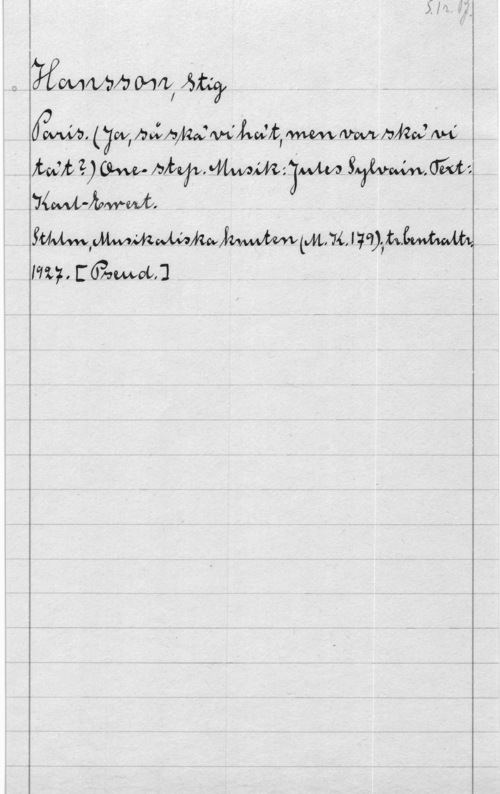 S. 1 r. Bj.
Hansson, Stig
Paris. (Ja, så ska' vi ha't, men var ska' vi
ta't?) One-step. Musik: Jules Sylvain. Text:
Karl-Ewert.
Sthlm, Musikaliska knuten (M.K. 179), tr. Centraltr.
1927. [Pseud.]